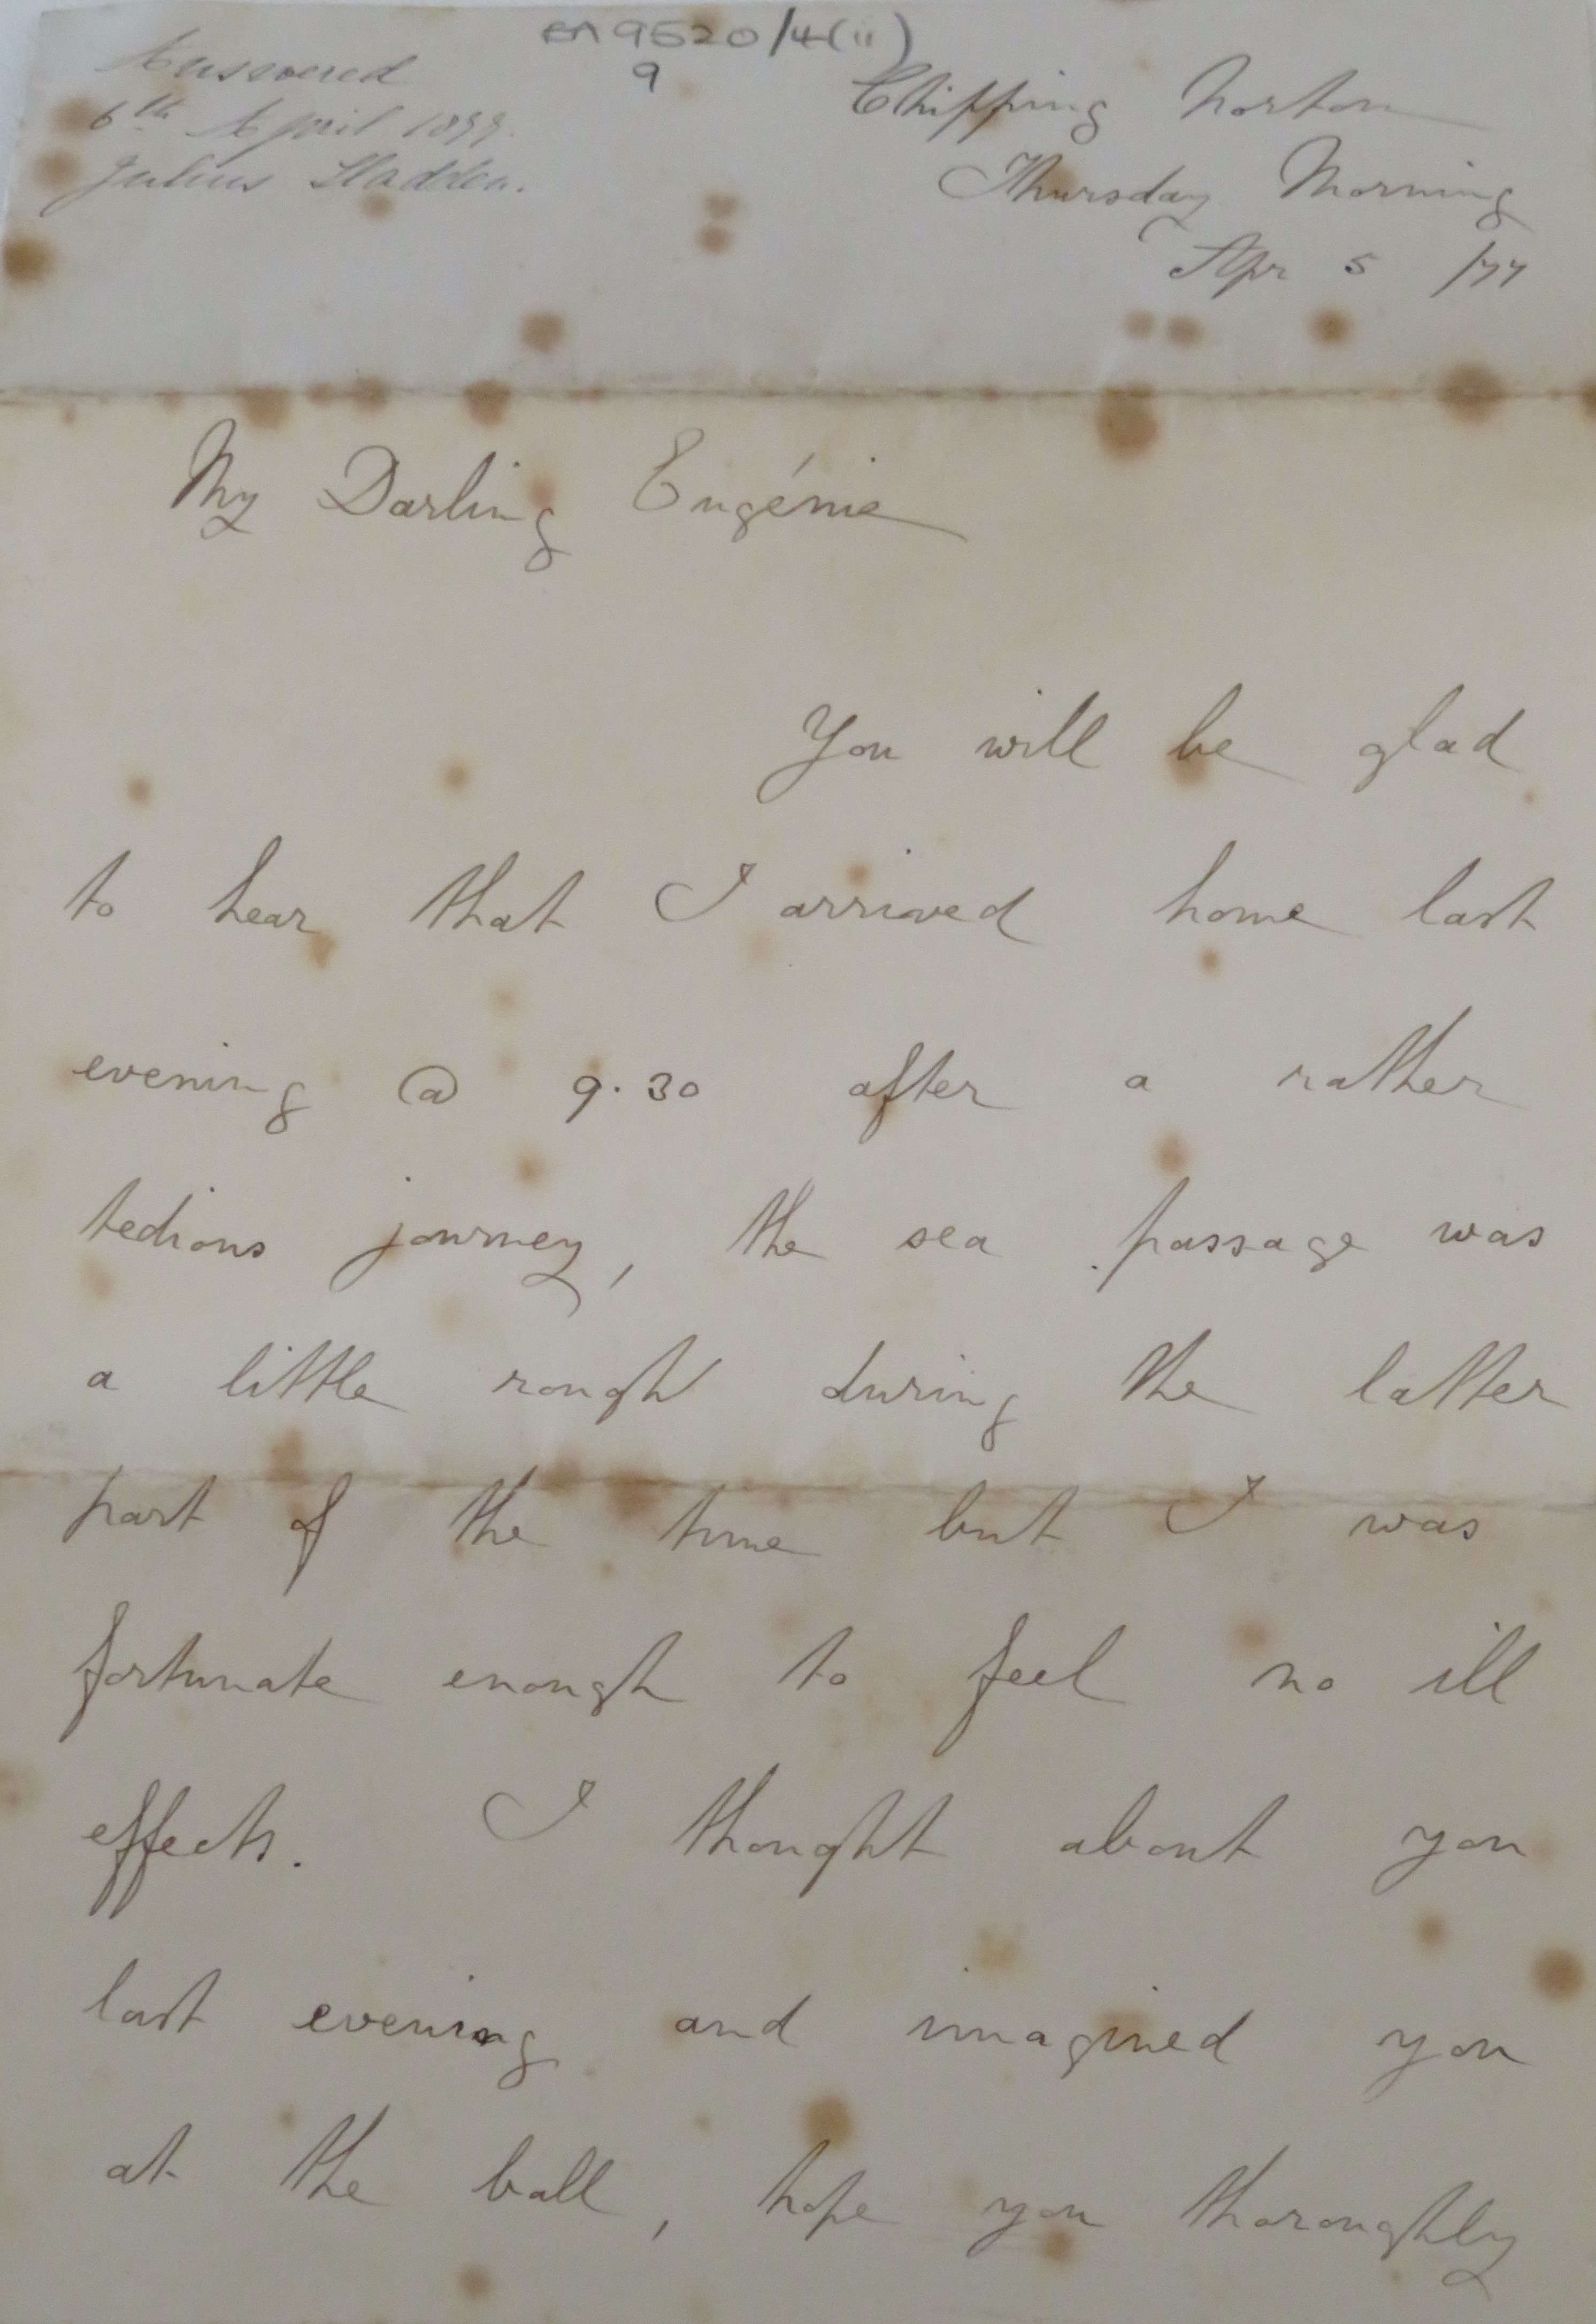 EA 9520/4(ii)
9
Answered
6th April 1877.
Julius Sladden.
Chipping Norton
Thursday Morning
Apr 5 /77
My Darling Eugénie
You will be glad
to hear that I arrived home last
evening @ 9.30 after a rather
tedious journey, the sea passage was
a little rough during the latter
part of the time but I was
fortunate enough to feel no ill
effects. I thought about you
last evening and imagined you
at the ball, hope you thoroughly